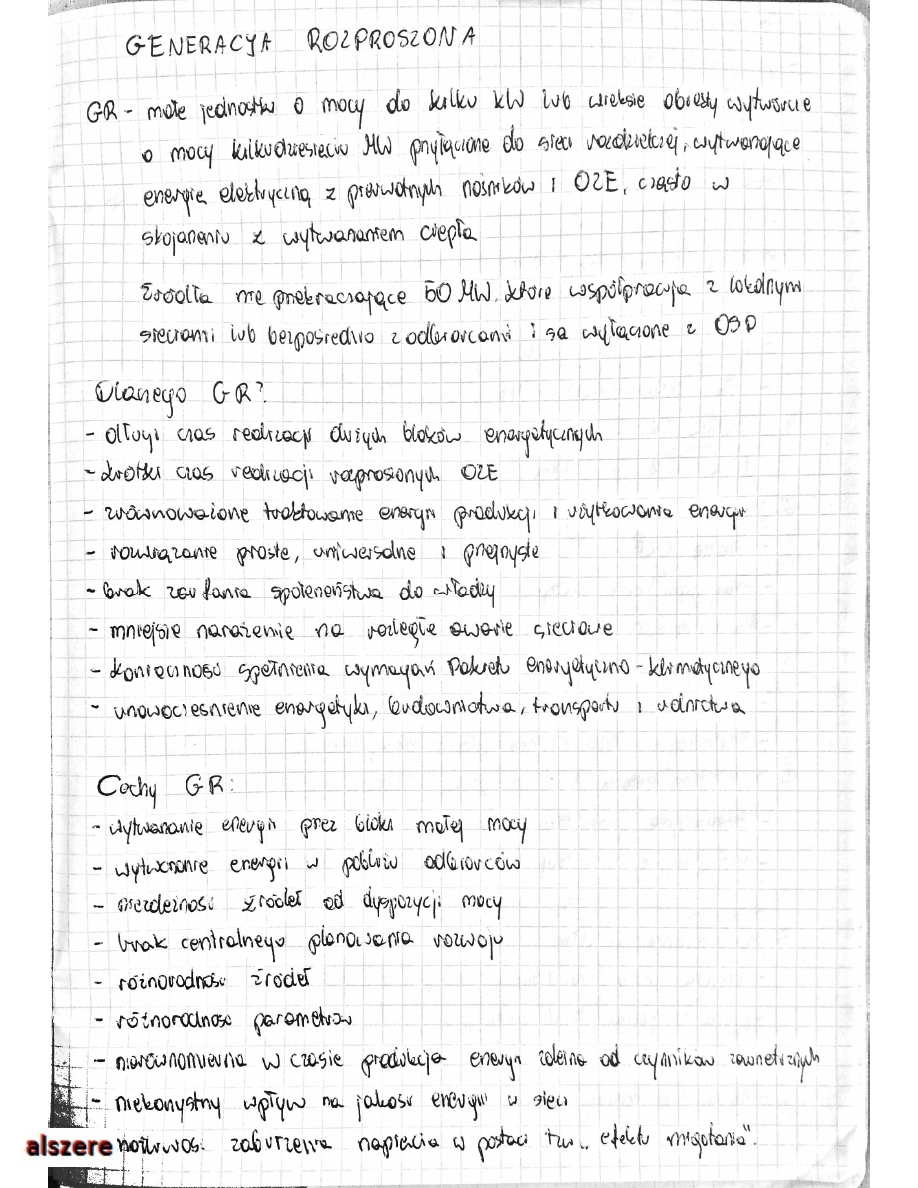 GENERACJA ROZPROSZONA
GR - małe jednostki o mocy do kilku kW lub większe obiekty wytwórcze
o mocy kilkudziesięciu MW przyłączone do sieci rozdzielczej, wytwarzające
energię elektryczną z pierwotnych nośników i OZE, często w
skojarzeniu z wytwarzaniem ciepła
Źródła nie przekraczające 50 MW, które współpracują z lokalnymi
sieciami lub bezpośrednio z odbiorcami i są wyłączone z OSD
Dlaczego GR?
- długi czas realizacji dużych bloków energetycznych
- krótki czas realizacji rozproszonych OZE
- zrównoważone traktowanie energii produkcji i użytkowania energii
- rozwiązanie proste, uniwersalne i przejrzyste
- brak zaufania społeczeństwa do władzy
- mniejsze narażenie na rozległe awarie sieciowe
- konieczność spełnienia wymagań Pakietu energetyczno-klimatycznego
- unowocześnienie energetyki, budownictwa, transportu i rolnictwa
Cechy GR:
- wytwarzanie energii przez bloki małej mocy
- wytwarzanie energii w pobliżu odbiorców
- niezależność źródeł od dyspozycji mocy
- brak centralnego planowania rozwoju
- różnorodność źródeł
- różnorodność parametrów
- nierównomierna w czasie produkcja energii zależna od czynników zewnętrznych
- niekorzystny wpływ na jakość energii w sieci
alszere możliwość zaburzenia napięcia w postaci tzw. „efektu migotania".